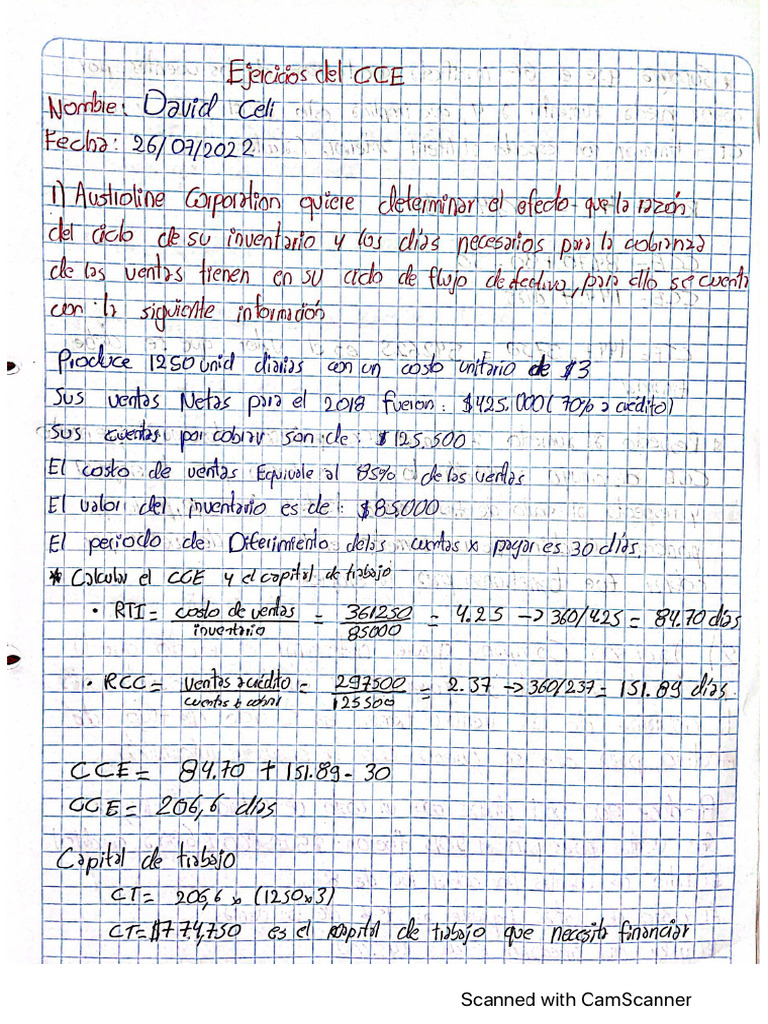 Ejercicios del CCE
Nombre: David Celi
Fecha: 26/07/2022
1) Austroline Corporation quiere determinar el efecto que la razón
del ciclo de su inventario y los días necesarios para la cobranza
de las ventas tienen en su ciclo de flujo de efectivo, para ello se cuenta
con la siguiente información
Produce 1250 unid diarias con un costo unitario de $3
Sus ventas Netas para el 2018 fueron: $425.000 (70% a crédito)
Sus cuentas por cobrar son de: $125.500
El costo de ventas Equivale al 85% de las ventas
El valor del inventario es de: $85000
El periodo de Diferimiento de las cuentas x pagar es 30 días.
* Calcular el CCE y el capital de trabajo
• RTI = costo de ventas / inventario = 361250 / 85000 = 4.25 → 360/4.25 = 84.70 días
• RCC = ventas a crédito / cuentas x cobrar = 297500 / 125500 = 2.37 → 360/237 = 151.89 días.
CCE = 84.70 + 151.89 - 30
CCE = 206,6 días
Capital de trabajo
CT = 206,6 x (1250x3)
CT = $774,750 es el capital de trabajo que necesita financiar
Scanned with CamScanner